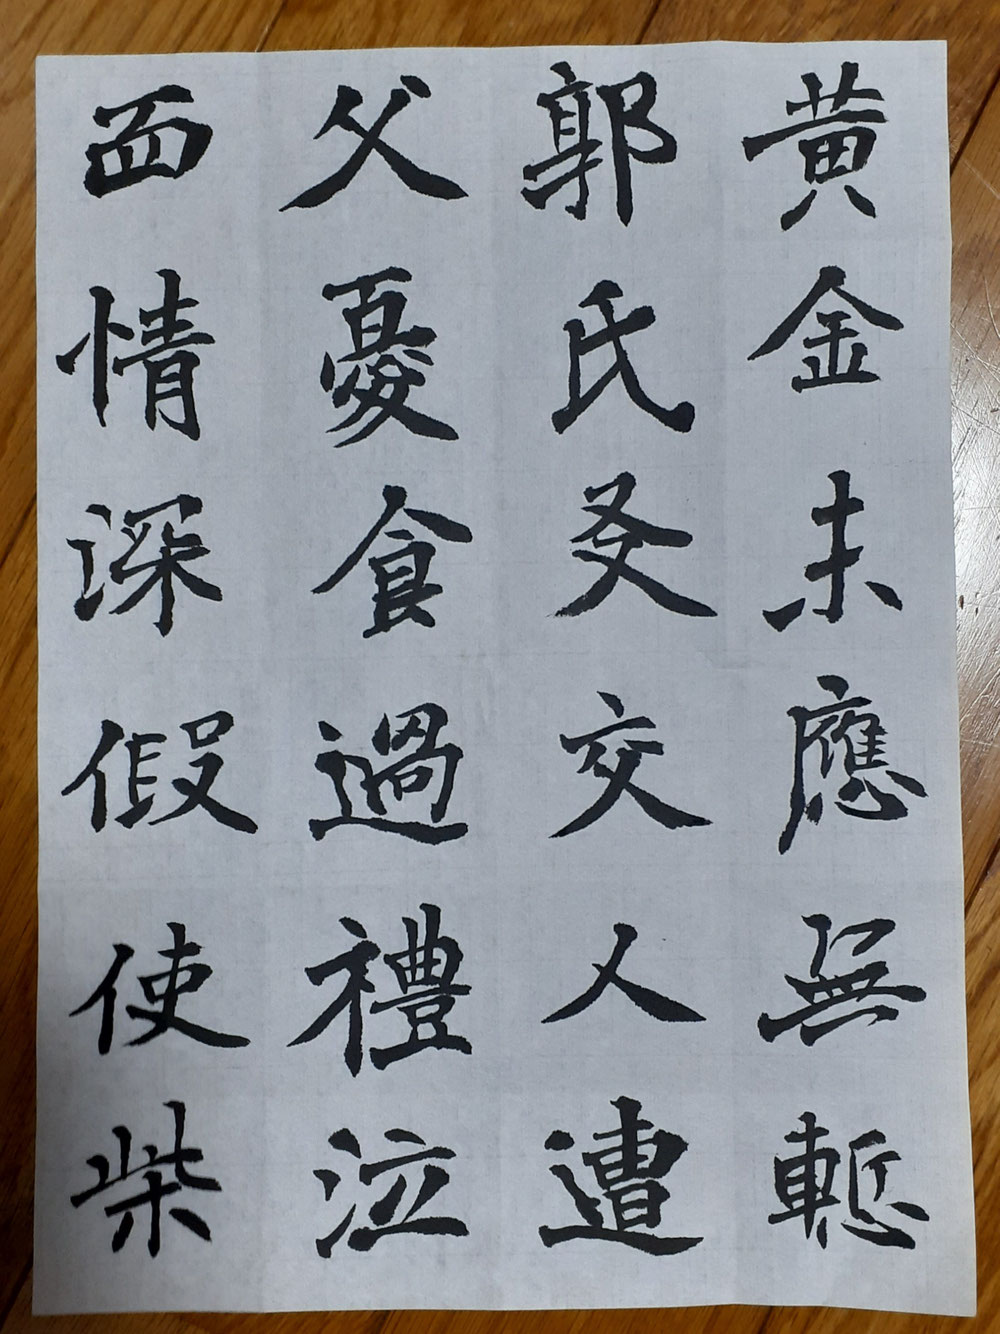 黄金未應無慙
郭氏友交人遭
父憂食過禮泣
血情深假使柴